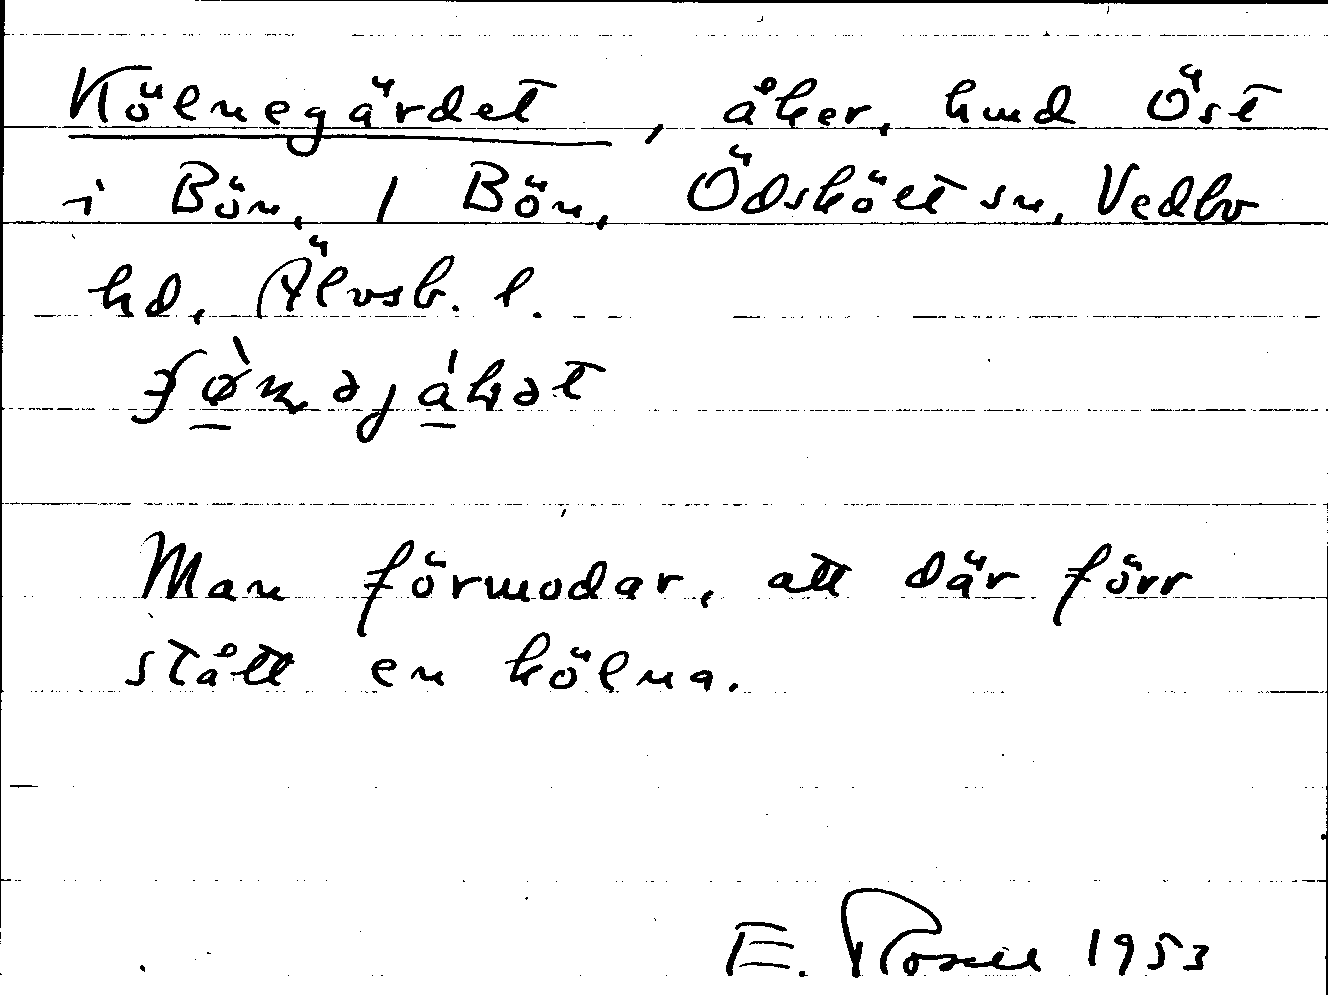 Kölnegärdet, åker, hmd Öst
i Bön, 1 Bön, Ödskölt sn, Vedbo
hd, Älvsb. l.
Man förmodar, att där förr
stått en kölna.
E. Rosell 1953